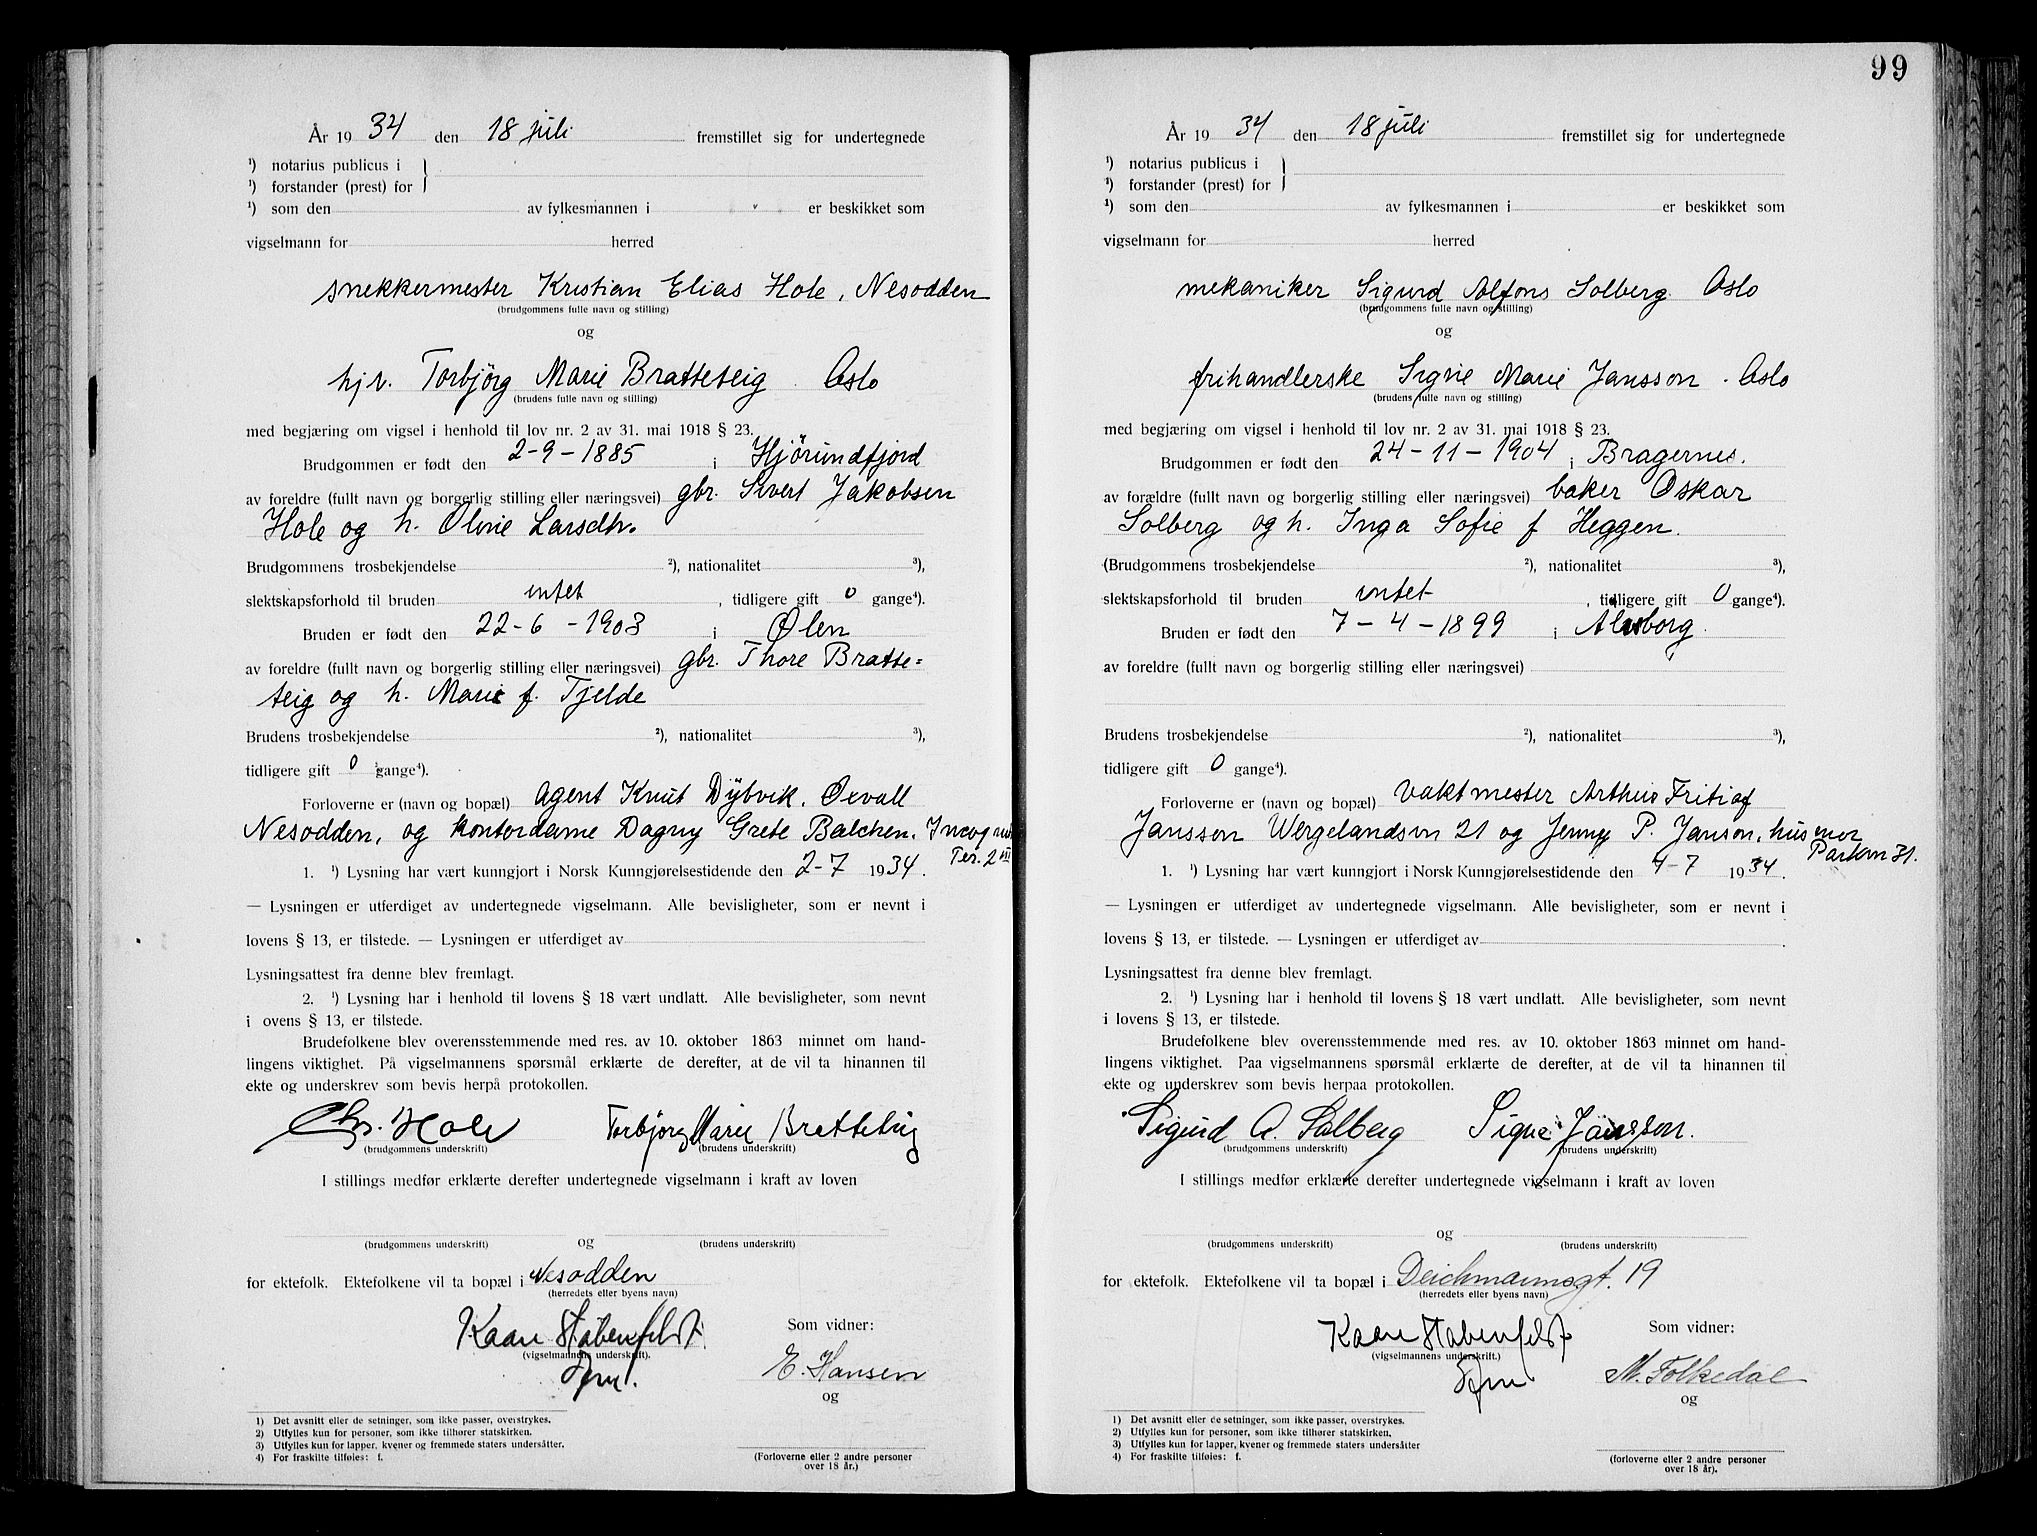 År 1934 den 18 juli fremstillet sig for undertegnede
1) notarius publicus i
1) forstander (prest) for
1) som den av fylkesmannen i er beskikket som
vigselmann for herred
snekkermester Kristian Elias Hole, Nesodden
(brudgommens fulle navn og stilling)
og
hj.v. Torbjörg Marie Bratteteig Oslo
(brudens fulle navn og stilling)
med begjæring om vigsel i henhold til lov nr. 2 av 31. mai 1918 § 23.
Brudgommen er født den 2-9-1885 i Hjörundfjord
av foreldre (fullt navn og borgerlig stilling eller næringsvei) gbr. Sivert Jakobsen
Hole og h. Oline Larsdh.
Brudgommens trosbekjendelse 2), nationalitet 3),
slektskapsforhold til bruden intet, tidligere gift 0 gange4).
Bruden er født den 22-6-1903 i Ølen
av foreldre (fullt navn og borgerlig stilling eller næringsvei) gbr. Thore Bratte=
teig og h. Marie f. Tjelde
Brudens trosbekjendelse 2), nationalitet 3),
tidligere gift 0 gange4).
Forloverne er (navn og bopæl) agent Knut Dÿbvik,
Nesodden, og kontordame Dagny Grete Balchen,
Ter. 2 III
1. 1) Lysning har vært kunngjort i Norsk Kunngjørelsestidende den 2-7 1934.
— Lysningen er utferdiget av undertegnede vigselmann. Alle bevisligheter, som er nevnt i
lovens § 13, er tilstede. — Lysningen er utferdiget av
Lysningsattest fra denne blev fremlagt.
2. 1) Lysning har i henhold til lovens § 18 vært undlatt. Alle bevisligheter, som nevnt
i ovens § 13, er tilstede.
Brudefolkene blev overensstemmende med res. av 10. oktober 1863 minnet om hand-
lingens viktighet. På vigselmannens spørsmål erklærte de derefter, at de vil ta hinannen til
ekte og underskrev som bevis herpå protokollen.
Chr. Hole Torbjörg Marie Bratteteig
(brudgommens underskrift) (brudens underskrift)
I stillings medfør erklærte derefter undertegnede vigselmann i kraft av loven
og
(brudgommens underskrift) (brudens underskrift)
for ektefolk. Ektefolkene vil ta bopæl i Nesodden
(herredets eller byens navn)
Som vidner:
(vigselmannens underskrift).
E. Hansen
og
1) Det avsnitt eller de setninger, som ikke passer, overstrykes.
2) Utfylles kun for personer, som ikke tilhører statskirken.
3) Utfylles kun for lapper, kvener og fremmede staters undersåtter.
4) For fraskilte tilføies: f.
(Forloverne eller 2 andre personer
over 18 år.)
99
År 1934 den 18 juli fremstillet sig for undertegnede
1) notarius publicus i
1) forstander (prest) for
1) som den av fylkesmannen i er beskikket som
vigselmann for herred
mekaniker Sigurd Alfons Solberg. Oslo
(brudgommens fulle navn og stilling)
og
frihandlerske Signe Marie Jansson. Oslo
(brudens fulle navn og stilling)
med begjæring om vigsel i henhold til lov nr. 2 av 31. mai 1918 § 23.
Brudgommen er født den 24-11-1904 i Bragernes.
av forældre (fullt navn og borgerlig stilling eller næringsvei) baker Oskar
Solberg og h. Inga Sofie f Heggen.
(Brudgommens trosbekjendelse 2), nationalitet 3),
slektskapsforhold til bruden intet, tidligere gift 0 gange4).
Bruden er født den 7-4-1899 i
av foreldre (fullt navn og borgerlig stilling eller næringsvei)
Brudens trosbekjendelse 2), nationalitet 3),
tidligere gift 0 gange4).
Forloverne er (navn og bopæl) vaktmester Arthur Fritiof
Jansson Wergelandsvn 21 og Jenny P. Janson, husmor
Parkvn 31.
1. 1) Lysning har vært kunngjort i Norsk Kunngjørelsestidende den 4-7 1934.
— Lysningen er utferdiget av undertegnede vigselmann. Alle bevisligheter, som er nevnt i
lovens § 13, er tilstede. — Lysningen er utferdiget av .
Lysningsattest fra denne blev fremlagt.
2. 1) Lysning har i henhold til lovens § 18 vært undlatt. Alle bevisligheter, som nevnt
i lovens § 13, er tilstede.
Brudefolkene blev overensstemmende med res. av 10. oktober 1863 minnet om hand-
lingens viktighet. Paa vigselmannens spørsmål erklærte de derefter, at de vil ta hinannen til
ekte og underskrev som bevis herpaa protokollen.
Sigurd A. Solberg Signe Jansson.
(brudgommens underskrift) (brudens underskrift)
I stillings medfør erklærte derefter undertegnede vigselmann i kraft av loven
og
(brudgommens underskrift) (brudens underskrift)
for ektefolk. Ektefolkene vil ta bopæl i Deichmannsgt. 19
(herredets eller byens navn)
Som vidner:
(vigselmannens underskrift.)
M. Folkedal
og
1) Det avsnitt eller de setninger, som ikke passer, overstrykes.
2) Utfylles kun for personer, som ikke tilhører statskirken.
3) Utfylles kun for lapper, kvener og fremmede staters undersåtter
4) For fraskilte tilføies: f.
(forloverne eller 2 andre personer
over 18 år).